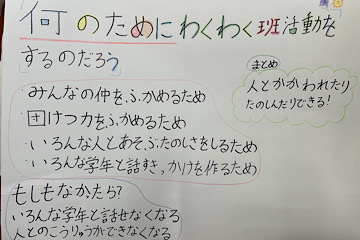 何のためにわくわく班活動を
するのだろう
・みんなの仲をふかめるため
・団けつ力をふかめるため
・いろんな人とあそぶたのしさをしるため
・いろんな学年と話すきっかけを作るため
まとめ
人とかかわれたり
たのしんだりできる!
もしもなかったら?
いろんな学年と話せなくなる
人とのこうりゅうができなくなる